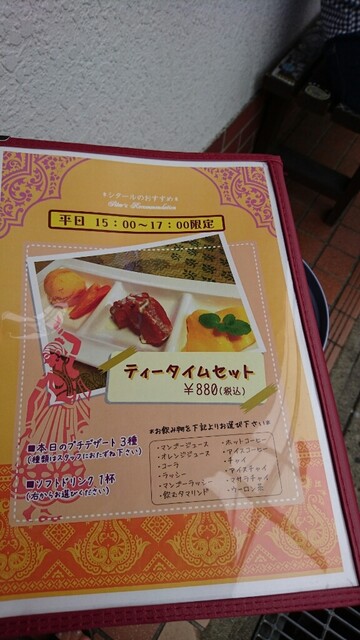 シタールのおすすめ
Sitar's Recommendation
平日 15:00〜17:00限定
ティータイムセット
¥880(税込)
※お飲み物を下記よりお選び下さい※
■本日のプチデザート3種
(種類はスタッフにおたずね下さい)
■ソフトドリンク1杯
(右からお選びください)
・マンゴージュース
・オレンジジュース
・コーラ
・ラッシー
・マンゴーラッシー
・飲むタマリンド
・ホットコーヒー
・アイスコーヒー
・チャイ
・アイスチャイ
・マサラチャイ
・ウーロン茶